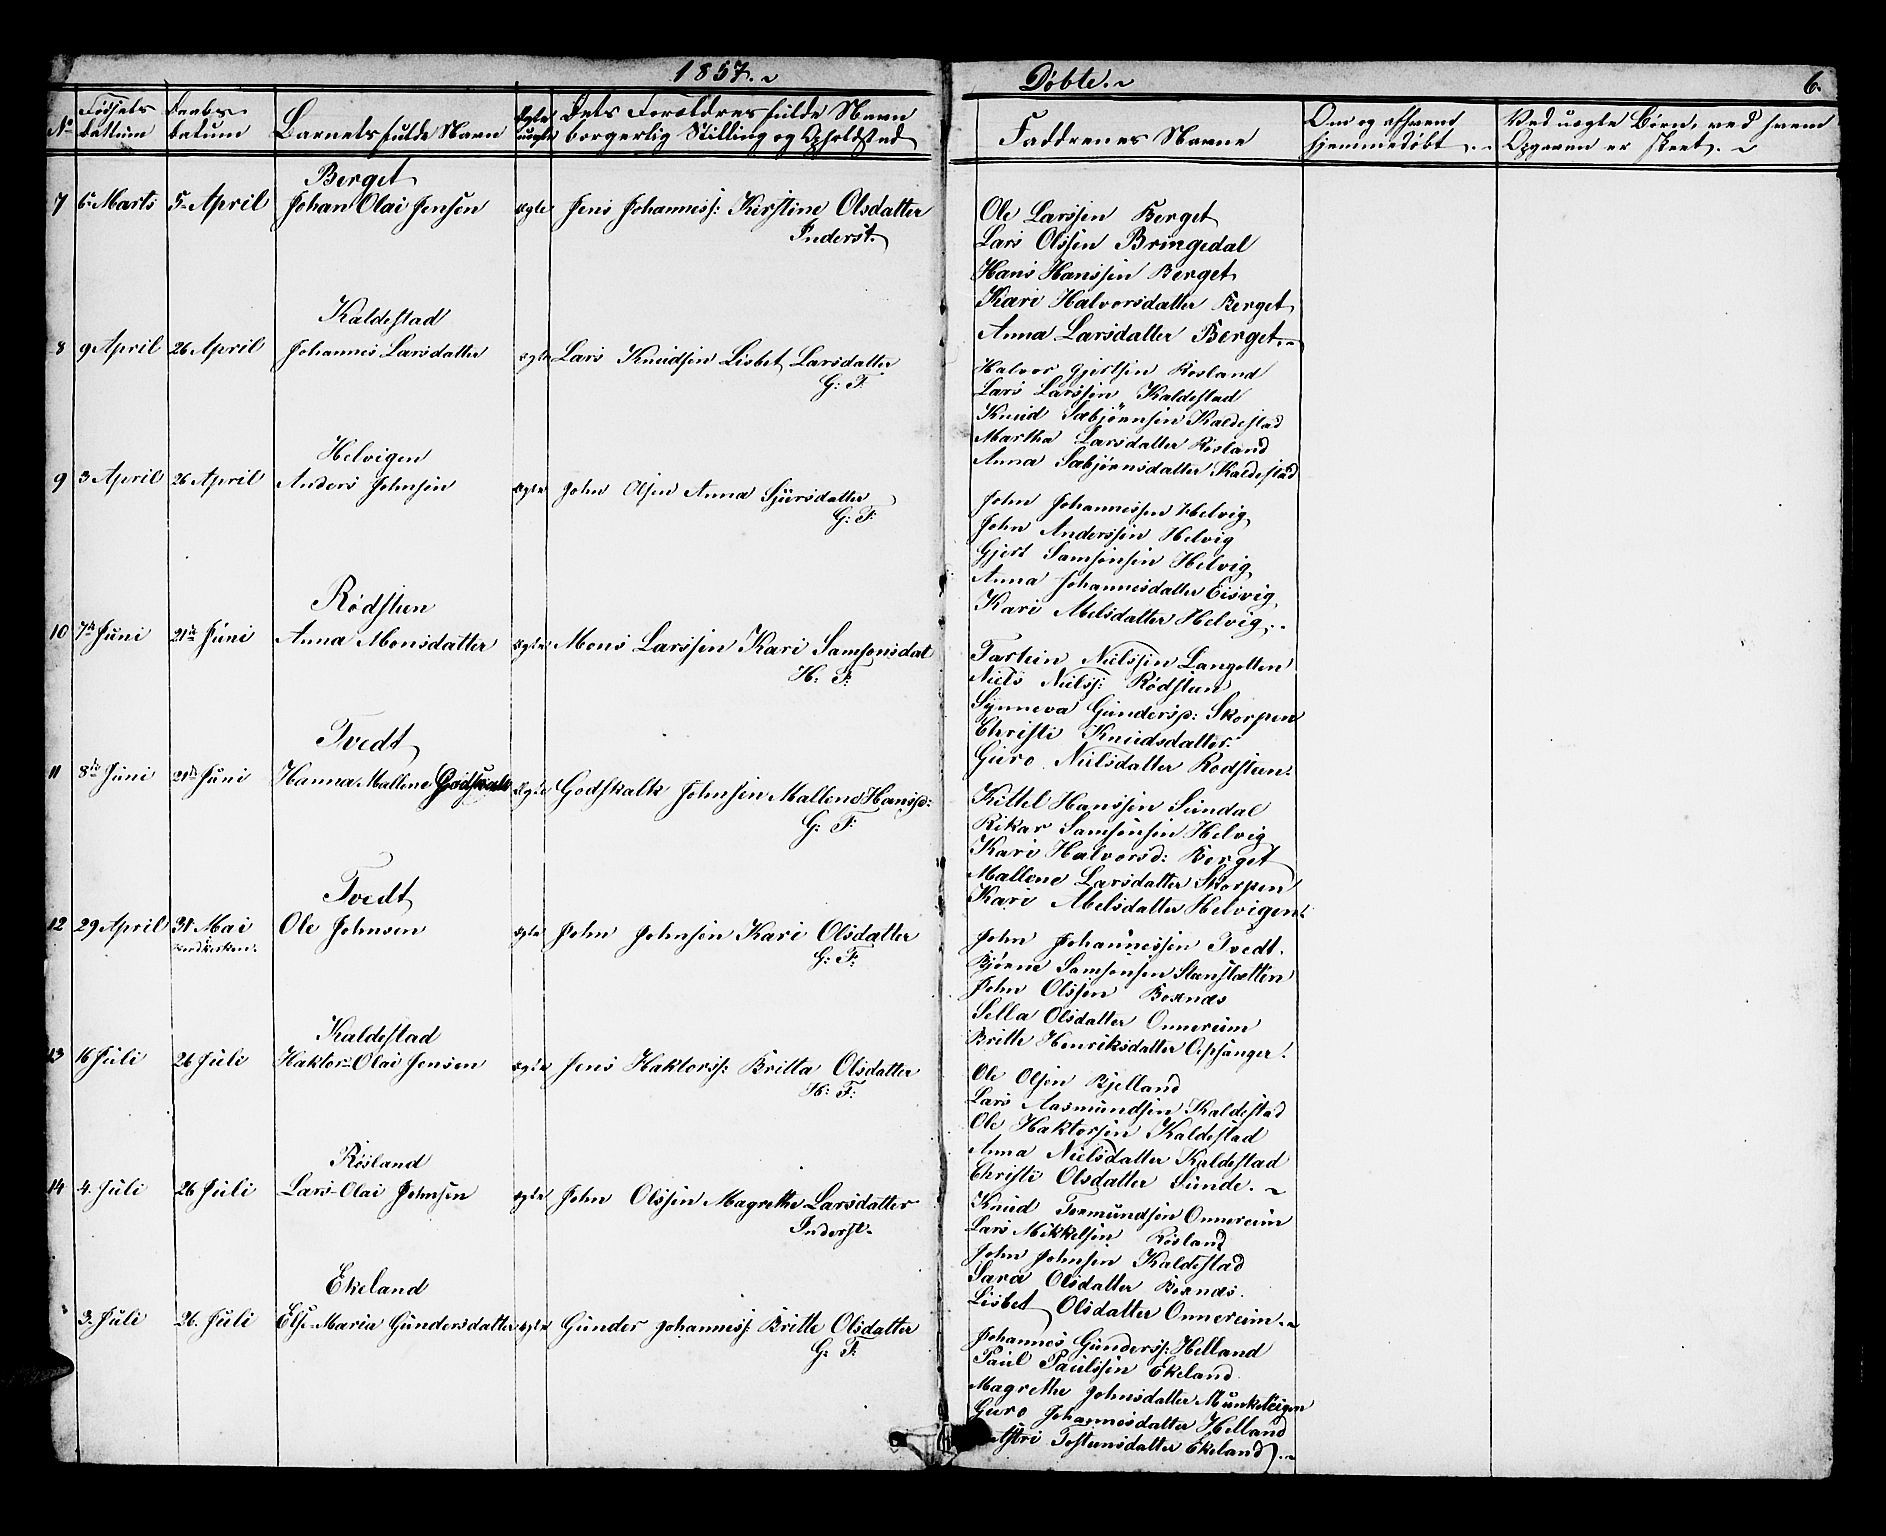 1857.~
Døbte.~
6.
No
Fødsels Dattum
Daabs Datum
Barnets fulde Navn
Ægte uægte
Dets Forældres fulde Navn borgerlig Stilling og Opholdsted
Faddrenes Navne
Om og af hvem hjemmedøbt.
Ved uægte Børn, ved hvem Opgaven er skeet.~
Berget
7 6 Marts 5 April Johan Olai Jensen ægte Jens Johanness: Kirstine Olsdatter
Inderst.
Ole Larssen Berget
Lars Olssen Bringedal
Hans Hanssen Berget
Kari Halvorsdatter Berget
Anna Larsdatter Berget.~
Kaldestad
8 9 April 26 April Johannes Larsdatter ægte Lars Knudsen Lisbet Larsdatter
G: F.
Halvor Gjertsen Røsland
Lars Larssen Kaldestad
Knud Sæbjørnsen Kaldestad
Martha Larsdatter Røsland
Anna Sæbjørnsdatter Kaldestad
Helvigen
9 3 April 26 April Anders Johnsen ægte John Olsen Anna Sjursdatter
G: F:
John Johannessen Helvig
John Anderssen Helvig
Gjert Samsonsen Helvig
Anna Johannesdatter Eisvig
Kari Melsdatter Helvig.
Rødsteen
10 7de Juni 21de Juni Anna Monsdatter ægte Mons Larssen Kari Samsonsdat
H: F:
Tostein Nielssen Langotten
Niels Nielss: Rødsteen
Synneva Gundersd: Skorpen
Christi Knudsdatter.
Guro Nielsdatter Rodsteen.
Tvedt
11 8de Juni 21de Juni Hanna Mallene Godskalk ægte Godskalk Johnsen Mallene Hansd:
G: F:
Kittel Hanssen Sundal
Rikar Samsonsen Helvig
Kari Halvorsd: Berget
Mallene Larsdatter Skorpen
Kari Melsdatter Helvigen.
Tvedt
12 29 April 31 Mai Ole Johnsen ægte John Johnsen Kari Olsdatter
G: F:
John Johannessen Tvedt.
Bjørne Samsonsen Steenslætten
John Olssen Boxnæs
Sella Olsdatter Onnereim
Britte Henriksdatter Oepsanger.
Kaldestad
13 16 Juli 26 Juli Haktor-Olai Jensen ægte Jens Haktorss: Britta Olsdatter
H: F:
Ole Olsen Bjelland
Lars Aasmundsen Kaldestad
Ole Haktorsen Kaldestad
Anna Nielsdatter Kaldestad
Christi Olsdatter Sunde.~
Røsland
14 4. Juli 26 Juli Lars-Olai Johnsen ægte John Olssen Magrethe Larsdatter
Inderst.
Knud Tormundsen Onnereim
Lars Mikkelsen Røsland
John Johnsen Kaldestad
Sara Olsdatter Boxnæs.
Lisbet Olsdatter Onnereim.~
Ekeland
3. Juli 26. Juli Else-Maria Gundersdatter ægte Gunder Johanness: Britte Olsdatter
G: F:
Johannes Gunderss: Helland
Paul Paulssen Ekeland
Magrethe Johnsdatter Munketeigen
Guro Johannesdatter Helland
Astri Tosteensdatter Ekeland.~